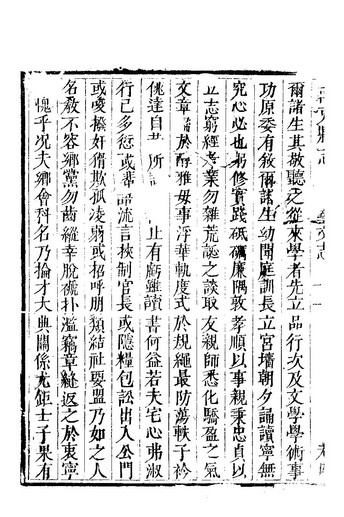 爾諸生其敬聽之從來學者先立品行次及文學學術事
功原委有敘爾諸生幼聞庭訓長立宮墻朝夕誦讀寧無
究心必也躬修實踐砥礪廉隅敦孝順以事親秉忠貞以
立志窮經考業勿雜荒誕之談取友親師悉化驕盈之氣
文章於醇雅毋事浮華軌度式於規繩最防蕩軼子衿
佻達自昔所 止有虧雖讀書何益若夫宅心弗淑
行己多愆或蜚語流言挾制官長或隱糧包訟出入公門
或唆撥奸猾欺孤凌弱或招呼朋類結社要盟乃如之人
名教不容鄉黨勿齒縱幸脫褫扑濫竊章縫返之於衷寧
愧乎況夫鄉會科名乃掄才大典關係尤鉅士子果有